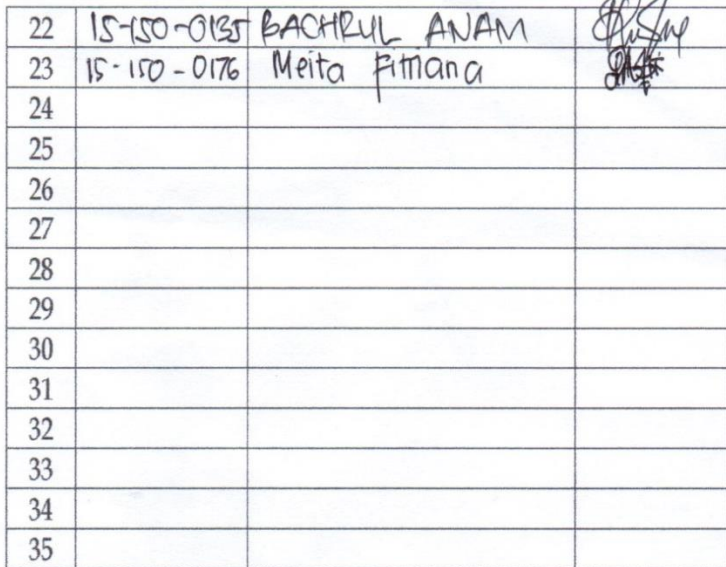 22 15-150-0135 BACHRUL ANAM
23 15-150-0176 Meita Fitriana
24
25
26
27
28
29
30
31
32
33
34
35